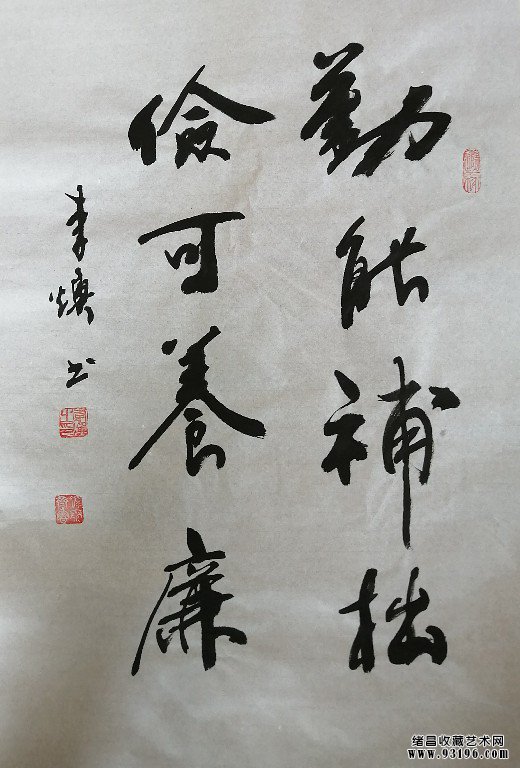 勤能補拙
儉可養廉
书
绪昌收藏艺术网
www.93196.com